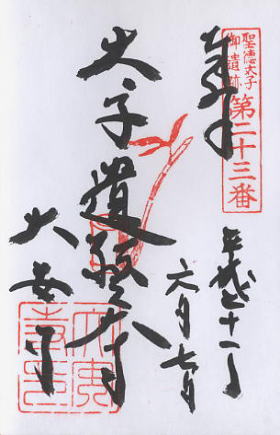 聖徳太子
御遺跡
第二十三番
奉拝
平成二十一年
六月七日
太子遺
大安寺